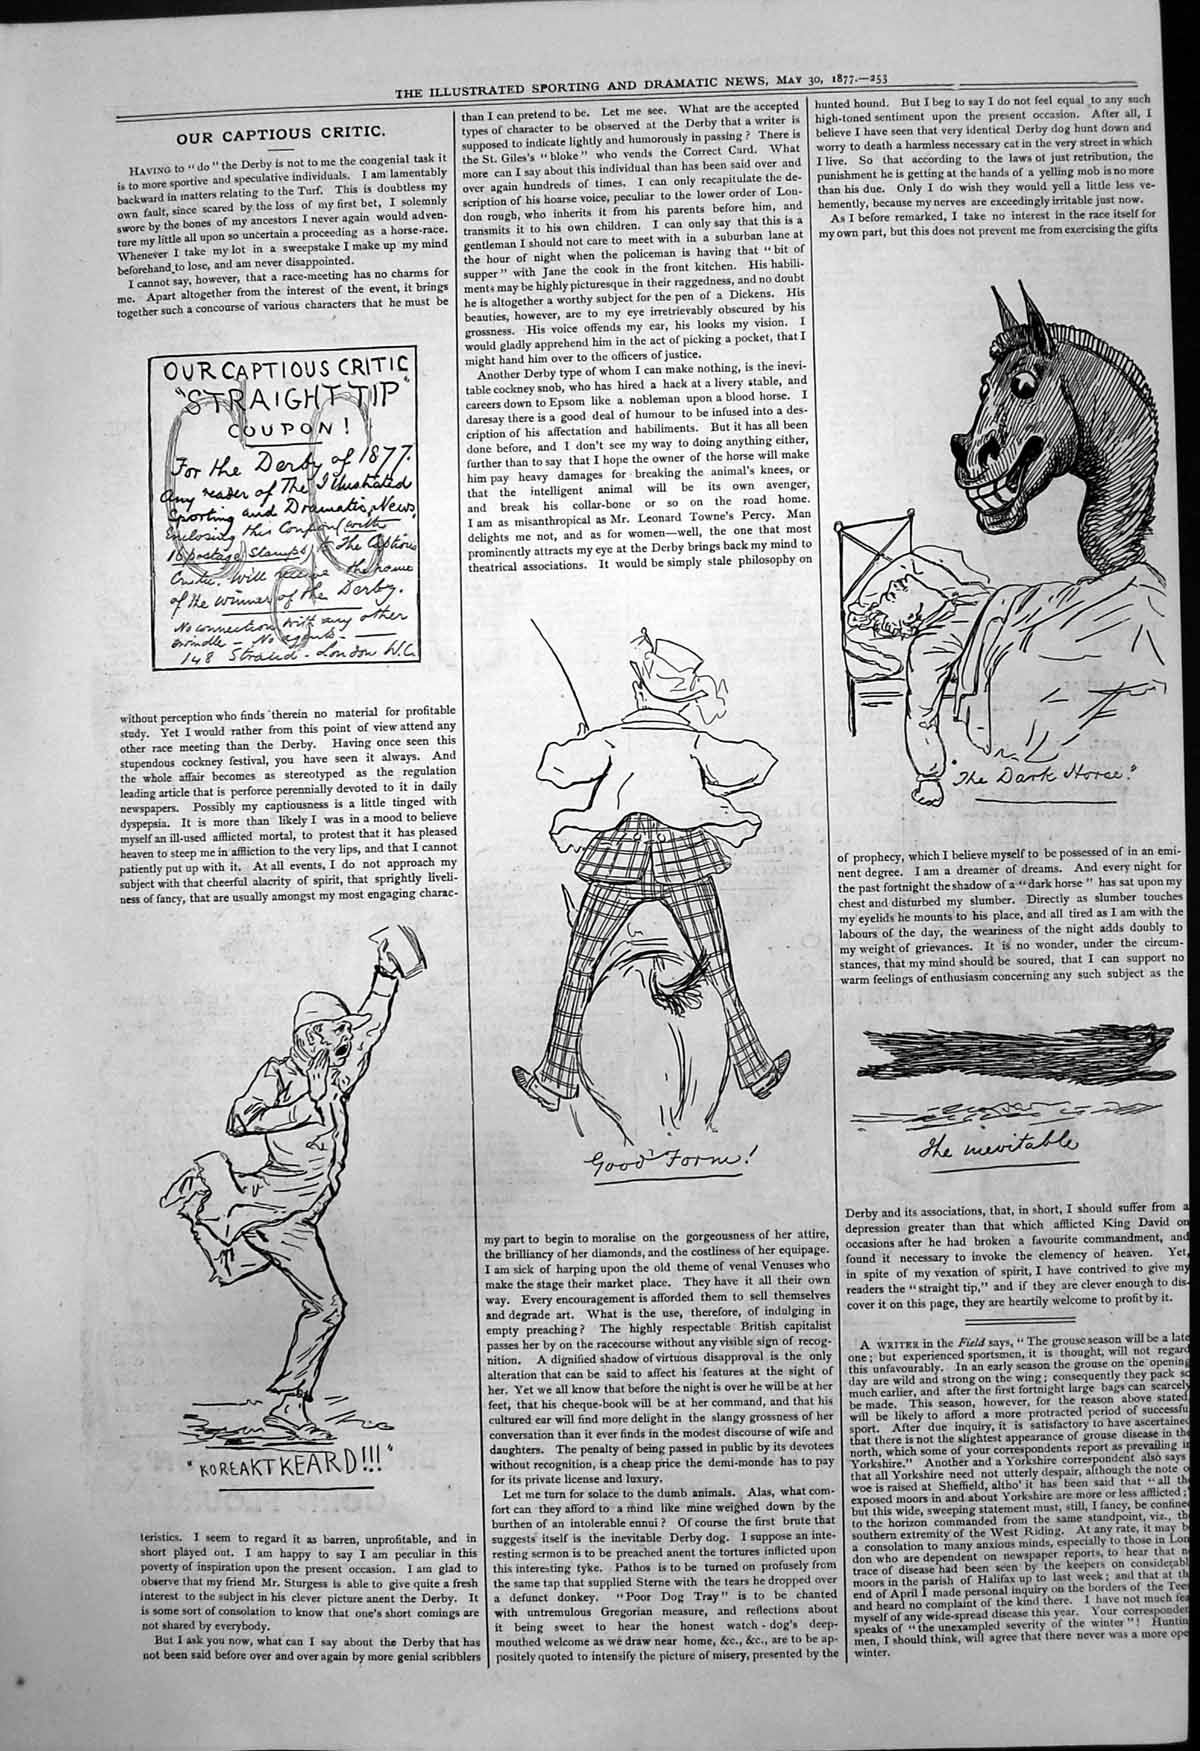 THE ILLUSTRATED SPORTING AND DRAMATIC NEWS, MAY 30, 1877.—253
OUR CAPTIOUS CRITIC.
HAVING to "do" the Derby is not to me the congenial task it
is to more sportive and speculative individuals. I am lamentably
backward in matters relating to the Turf. This is doubtless my
own fault, since scared by the loss of my first bet, I solemnly
swore by the bones of my ancestors I never again would adven-
ture my little all upon so uncertain a proceeding as a horse-race.
Whenever I take my lot in a sweepstake I make up my mind
beforehand to lose, and am never disappointed.
I cannot say, however, that a race-meeting has no charms for
me. Apart altogether from the interest of the event, it brings
together such a concourse of various characters that he must be
OUR CAPTIOUS CRITIC
"STRAIGHT TIP"
COUPON!
For the Derby of 1877.
Any reader of The Illustrated
Sporting and Dramatic News,
Enclosing this Coupon (with
16 postage Stamps) to The Captious
Critic. Will receive the name
of the winner of the Derby.
No connection with any other
swindle - No agents -
148 Strand - London W.C.
without perception who finds therein no material for profitable
study. Yet I would rather from this point of view attend any
other race meeting than the Derby. Having once seen this
stupendous cockney festival, you have seen it always. And
the whole affair becomes as stereotyped as the regulation
leading article that is perforce perennially devoted to it in daily
newspapers. Possibly my captiousness is a little tinged with
dyspepsia. It is more than likely I was in a mood to believe
myself an ill-used afflicted mortal, to protest that it has pleased
heaven to steep me in affliction to the very lips, and that I cannot
patiently put up with it. At all events, I do not approach my
subject with that cheerful alacrity of spirit, that sprightly liveli-
ness of fancy, that are usually amongst my most engaging charac-
"KOREAKTKEARD!!!"
teristics. I seem to regard it as barren, unprofitable, and in
short played out. I am happy to say I am peculiar in this
poverty of inspiration upon the present occasion. I am glad to
observe that my friend Mr. Sturgess is able to give quite a fresh
interest to the subject in his clever picture anent the Derby. It
is some sort of consolation to know that one's short comings are
not shared by everybody.
But I ask you now, what can I say about the Derby that has
not been said before over and over again by more genial scribblers
than I can pretend to be. Let me see. What are the accepted
types of character to be observed at the Derby that a writer is
supposed to indicate lightly and humorously in passing? There is
the St. Giles's "bloke" who vends the Correct Card. What
more can I say about this individual than has been said over and
over again hundreds of times. I can only recapitulate the de-
scription of his hoarse voice, peculiar to the lower order of Lon-
don rough, who inherits it from his parents before him, and
transmits it to his own children. I can only say that this is a
gentleman I should not care to meet with in a suburban lane at
the hour of night when the policeman is having that "bit of
supper" with Jane the cook in the front kitchen. His habili-
ments may be highly picturesque in their raggedness, and no doubt
he is altogether a worthy subject for the pen of a Dickens. His
beauties, however, are to my eye irretrievably obscured by his
grossness. His voice offends my ear, his looks my vision. I
would gladly apprehend him in the act of picking a pocket, that I
might hand him over to the officers of justice.
Another Derby type of whom I can make nothing, is the inevi-
table cockney snob, who has hired a hack at a livery stable, and
careers down to Epsom like a nobleman upon a blood horse. I
daresay there is a good deal of humour to be infused into a des-
cription of his affectation and habiliments. But it has all been
done before, and I don't see my way to doing anything either,
further than to say that I hope the owner of the horse will make
him pay heavy damages for breaking the animal's knees, or
that the intelligent animal will be its own avenger,
and break his collar-bone or so on the road home.
I am as misanthropical as Mr. Leonard Towne's Percy. Man
delights me not, and as for women—well, the one that most
prominently attracts my eye at the Derby brings back my mind to
theatrical associations. It would be simply stale philosophy on
Good Form!
my part to begin to moralise on the gorgeousness of her attire,
the brilliancy of her diamonds, and the costliness of her equipage.
I am sick of harping upon the old theme of venal Venuses who
make the stage their market place. They have it all their own
way. Every encouragement is afforded them to sell themselves
and degrade art. What is the use, therefore, of indulging in
empty preaching? The highly respectable British capitalist
passes her by on the racecourse without any visible sign of recog-
nition. A dignified shadow of virtuous disapproval is the only
alteration that can be said to affect his features at the sight of
her. Yet we all know that before the night is over he will be at her
feet, that his cheque-book will be at her command, and that his
cultured ear will find more delight in the slangy grossness of her
conversation than it ever finds in the modest discourse of wife and
daughters. The penalty of being passed in public by its devotees
without recognition, is a cheap price the demi-monde has to pay
for its private license and luxury.
Let me turn for solace to the dumb animals. Alas, what com-
fort can they afford to a mind like mine weighed down by the
burthen of an intolerable ennui? Of course the first brute that
suggests itself is the inevitable Derby dog. I suppose an inte-
resting sermon is to be preached anent the tortures inflicted upon
this interesting tyke. Pathos is to be turned on profusely from
the same tap that supplied Sterne with the tears he dropped over
a defunct donkey. "Poor Dog Tray" is to be chanted
with untremulous Gregorian measure, and reflections about
it being sweet to hear the honest watch-dog's deep-
mouthed welcome as we draw near home, &c., &c., are to be ap-
positely quoted to intensify the picture of misery, presented by the
hunted hound. But I beg to say I do not feel equal to any such
high-toned sentiment upon the present occasion. After all, I
believe I have seen that very identical Derby dog hunt down and
worry to death a harmless necessary cat in the very street in which
I live. So that according to the laws of just retribution, the
punishment he is getting at the hands of a yelling mob is no more
than his due. Only I do wish they would yell a little less ve-
hemently, because my nerves are exceedingly irritable just now.
As I before remarked, I take no interest in the race itself for
my own part, but this does not prevent me from exercising the gifts
"The Dark Horse."
of prophecy, which I believe myself to be possessed of in an emi-
nent degree. I am a dreamer of dreams. And every night for
the past fortnight the shadow of a "dark horse" has sat upon my
chest and disturbed my slumber. Directly as slumber touches
my eyelids he mounts to his place, and all tired as I am with the
labours of the day, the weariness of the night adds doubly to
my weight of grievances. It is no wonder, under the circum-
stances, that my mind should be soured, that I can support no
warm feelings of enthusiasm concerning any such subject as the
The inevitable
Derby and its associations, that, in short, I should suffer from a
depression greater than that which afflicted King David on
occasions after he had broken a favourite commandment, and
found it necessary to invoke the clemency of heaven. Yet,
in spite of my vexation of spirit, I have contrived to give my
readers the "straight tip," and if they are clever enough to dis-
cover it on this page, they are heartily welcome to profit by it.
A WRITER in the Field says, "The grouse season will be a late
one; but experienced sportsmen, it is thought, will not regard
this unfavourably. In an early season the grouse on the opening
day are wild and strong on the wing; consequently they pack so
much earlier, and after the first fortnight large bags can scarcely
be made. This season, however, for the reason above stated,
will be likely to afford a more protracted period of successful
sport. After due inquiry, it is satisfactory to have ascertained
that there is not the slightest appearance of grouse disease in the
north, which some of your correspondents report as prevailing in
Yorkshire." Another and a Yorkshire correspondent also says
that all Yorkshire need not utterly despair, although the note of
woe is raised at Sheffield, altho' it has been said that "all the
exposed moors in and about Yorkshire are more or less afflicted;"
but this wide, sweeping statement must, still, I fancy, be confined
to the horizon commanded from the same standpoint, viz., the
southern extremity of the West Riding. At any rate, it may be
a consolation to many anxious minds, especially to those in Lon-
don who are dependent on newspaper reports, to hear that no
trace of disease had been seen by the keepers on considerable
moors in the parish of Halifax up to last week; and that at the
end of April I made personal inquiry on the borders of the Tees
and heard no complaint of the kind there. I have not much fear
myself of any wide-spread disease this year. Your correspondent
speaks of "the unexampled severity of the winter"! Hunting
men, I should think, will agree that there never was a more open
winter.